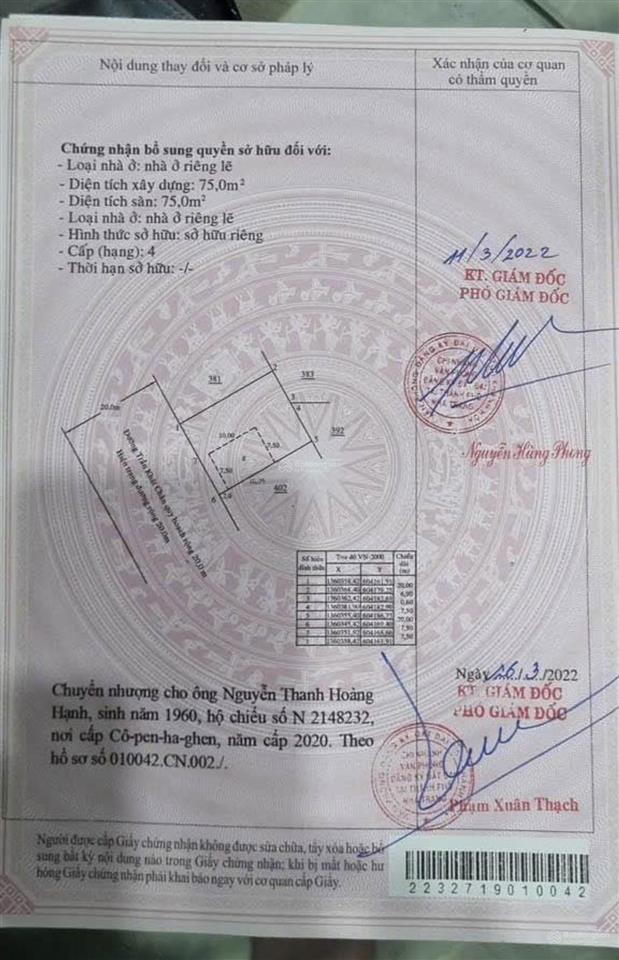 Nội dung thay đổi và cơ sở pháp lý
Xác nhận của cơ quan
có thẩm quyền
Chứng nhận bổ sung quyền sở hữu đối với:
- Loại nhà ở: nhà ở riêng lẽ
- Diện tích xây dựng: 75,0m²
- Diện tích sàn: 75,0m²
- Loại nhà ở: nhà ở riêng lẽ
- Hình thức sở hữu: sở hữu riêng
- Cấp (hạng): 4
- Thời hạn sở hữu: -/-
11/3/2022
KT. GIÁM ĐỐC
PHÓ GIÁM ĐỐC
Nguyễn Hùng Phong
381
2
383
20.0m
3
4
1
392
10,00
7,50
5
7
7,50
g
6
2.0
402
Đường Trần Khát Chân quy hoạch rộng 20.0 m
Hiện trạng đường rộng 20.0m
Số hiệu
đỉnh thửa
Tọa độ VN-2000
Chiều
dài
(m)
X
Y
1
2
3
4
5
6
7
20,00
6,90
0,60
7,50
20,00
7,50
7,50
Chuyển nhượng cho ông Nguyễn Thanh Hoàng
Hạnh, sinh năm 1960, hộ chiếu số N 2148232,
nơi cấp Cô-pen-ha-ghen, năm cấp 2020. Theo
hồ sơ số 010042.CN.002./.
Ngày 26/3/2022
KT. GIÁM ĐỐC
PHÓ GIÁM ĐỐC
CHI NHÁNH
VĂN PHÒNG
ĐĂNG KÝ ĐẤT ĐAI
TẠI THÀNH PHỐ
NHA TRANG
Phạm Xuân Thạch
Người được cấp Giấy chứng nhận không được sửa chữa, tẩy xóa hoặc bổ
sung bất kỳ nội dung nào trong Giấy chứng nhận; khi bị mất hoặc hư
hỏng Giấy chứng nhận phải khai báo ngay với cơ quan cấp Giấy.
2232719010042